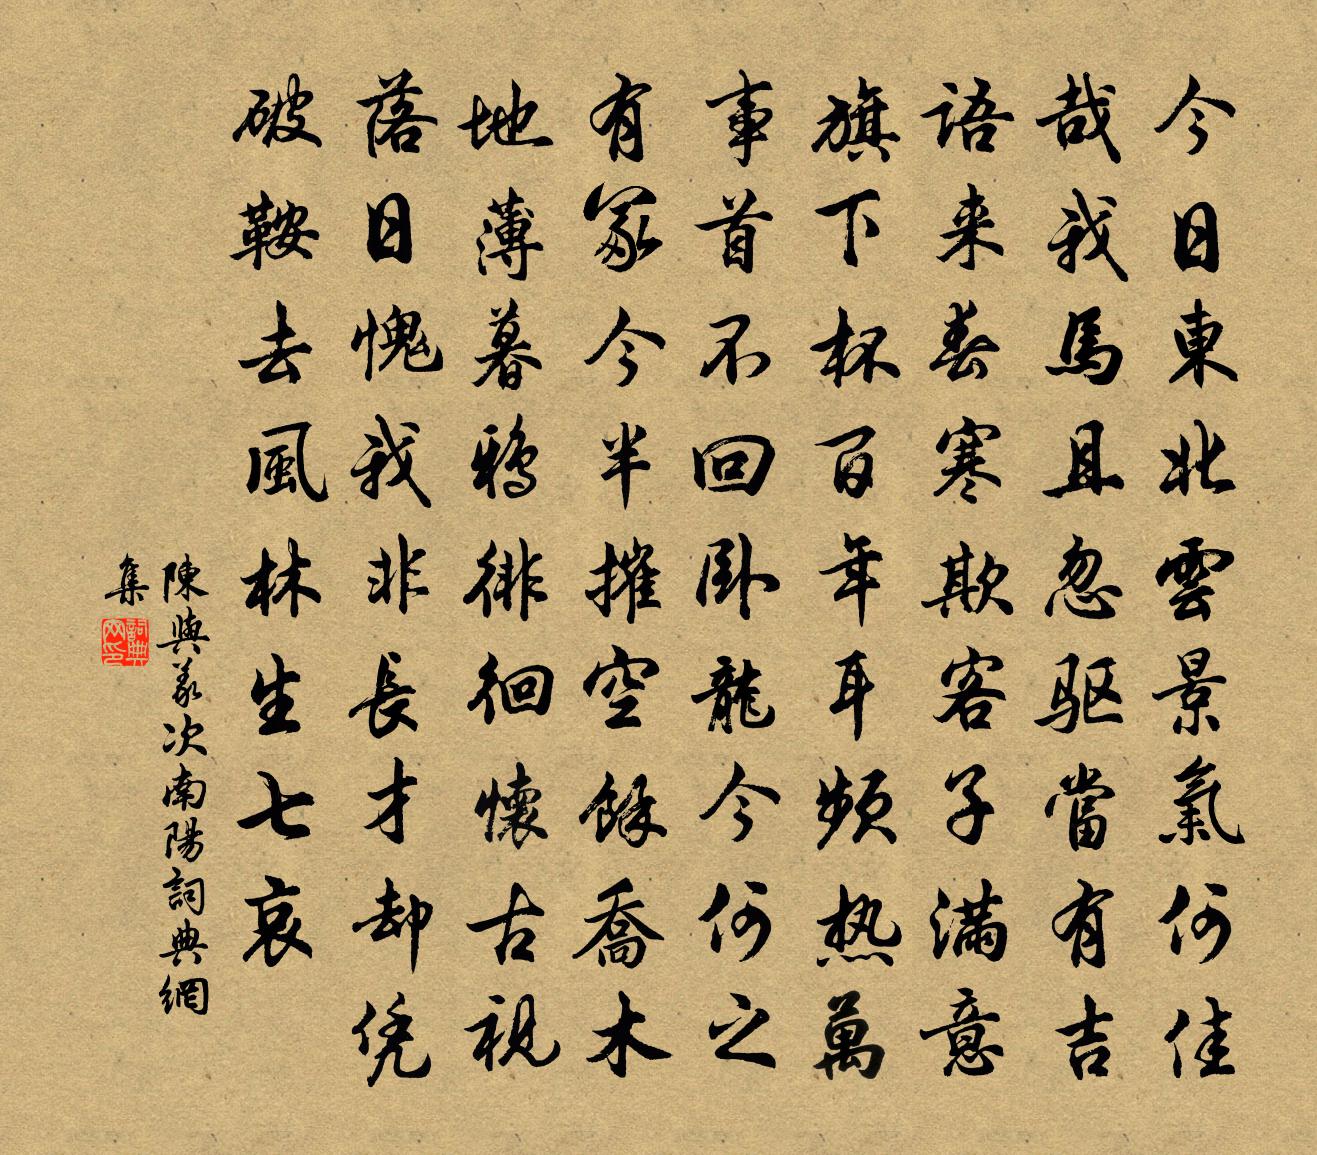 今日東北雲景氣何佳
哉我馬且忽驱當有吉
語来春寒欺客子满意
旗下杯百年耳頻热萬
事首不回卧龍今何之
有冢今半摧空餘喬木
地薄暮鴉徘徊懷古視
落日愧我非長才却凭
破鞍去風林生七哀
陳與義次南陽詞典網
集
詞典网印